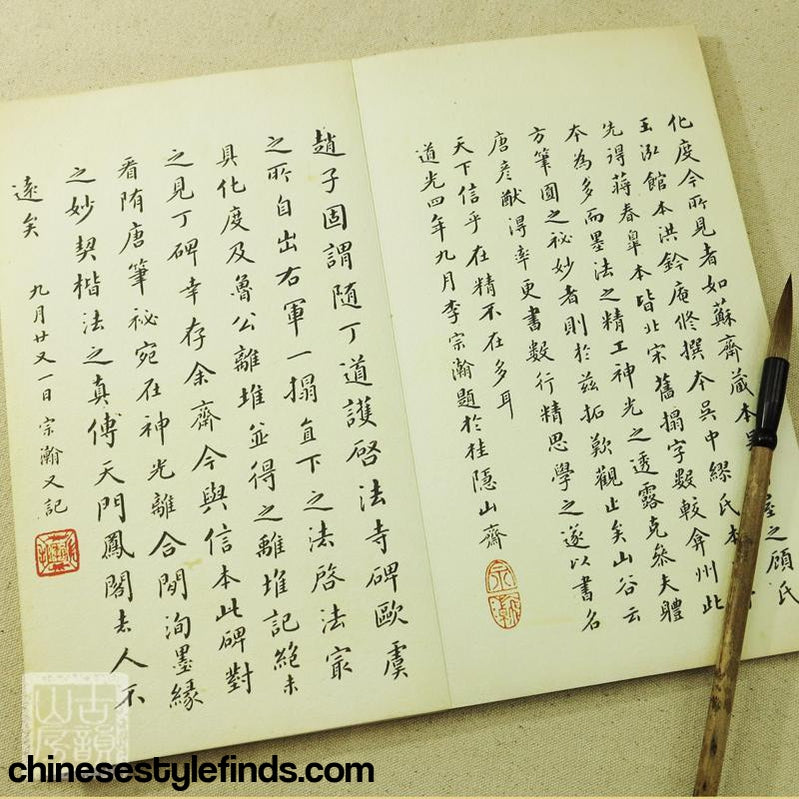 化度今所見者如蘇齋藏本
屋之顧氏
玉泓館本洪鈐庵修撰本吳中繆氏本
先得蔣春皐本皆北宋舊搨字數較弇州此
本為多而墨法之精工神光之透露克叅夫體
方筆圓之祕妙者則於茲拓歎觀止矣山谷云
唐彦猷得率更書數行精思學之遂以書名
天下信乎在精不在多耳
道光四年九月李宗瀚題於桂隱山齋
趙子固謂隨丁道護啓法寺碑歐虞
之所自出右軍一搨直下之法啓法寂
具化度及魯公離堆並得之離堆記絕未
之見丁碑幸存余齋今與信本此碑對
看隋唐筆祕宛在神光離合間洵墨緣
之妙契楷法之真傳天門鳳閣去人不
遠矣 九月廿又一日宗瀚又記
古韻山房
chinesestylefinds.com